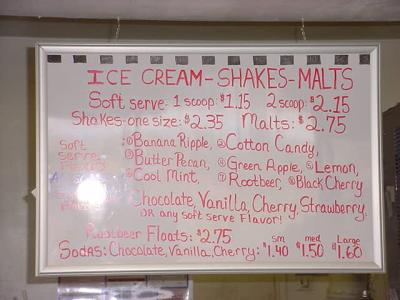 ICE CREAM-SHAKES-MALTS
Soft serve: 1 scoop: $1.15 2 scoop: $2.15
Shakes-one size: $2.35 Malts: $2.75
Soft Serve Flavors: ①Banana Ripple, ②Cotton Candy,
③Butter Pecan, ④Green Apple, ⑤Lemon,
⑥Cool Mint, ⑦Rootbeer, ⑧Black Cherry
Chocolate, Vanilla, Cherry, Strawberry,
OR any soft serve Flavor!
Rootbeer Floats: $2.75
Sodas: Chocolate, Vanilla, Cherry: sm $1.40 med $1.50 Large $1.60